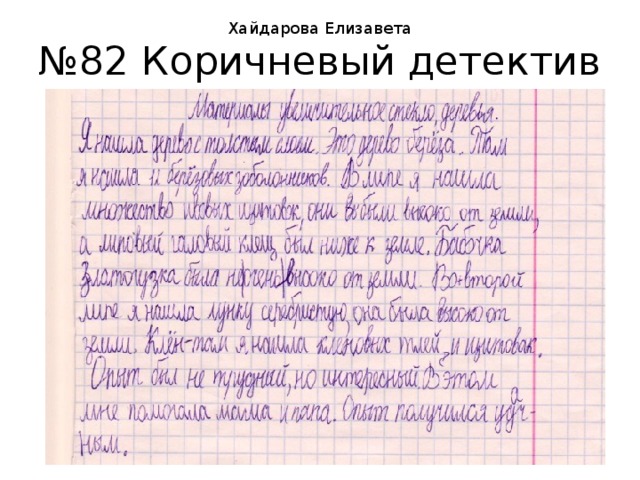 Хайдарова Елизавета
№82 Коричневый детектив
Материалы увеличительное стекло, деревья.
Я нашла дерево с толстым слоем. Это дерево берёза. Там
я нашла 12 берёзовых заболонников. В липе я нашла
множество ивовых щитовок, они были высоко от земли,
а липовый галовый клещ был ниже к земле. Бабочка
Златогузка была высоко от земли. Во второй
липе я нашла лунку серебристую, она была высоко от
земли. Клён-там я нашла кленовых тлей, и щитовок.
Опыт был не трудный, но интересный. В этом
мне помогала мама и папа. Опыт получился удач-
ным.